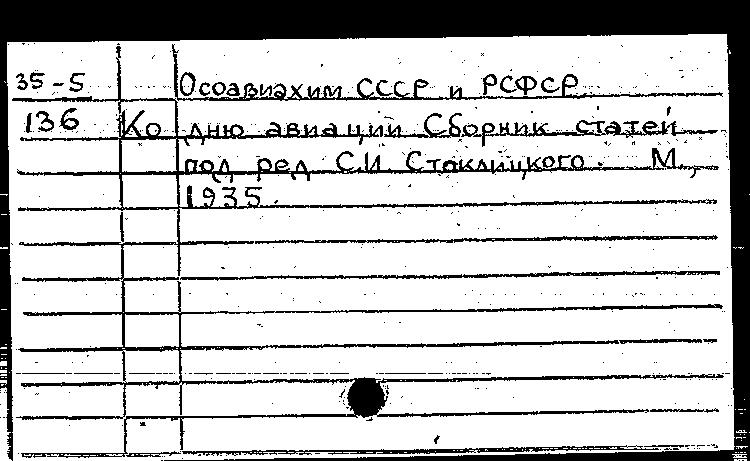 35-5 Осоавиахим СССР и РСФСР
136 Ко дню авиации Сборник статей
под ред С.И. Стоклицкого. М.,
1935.